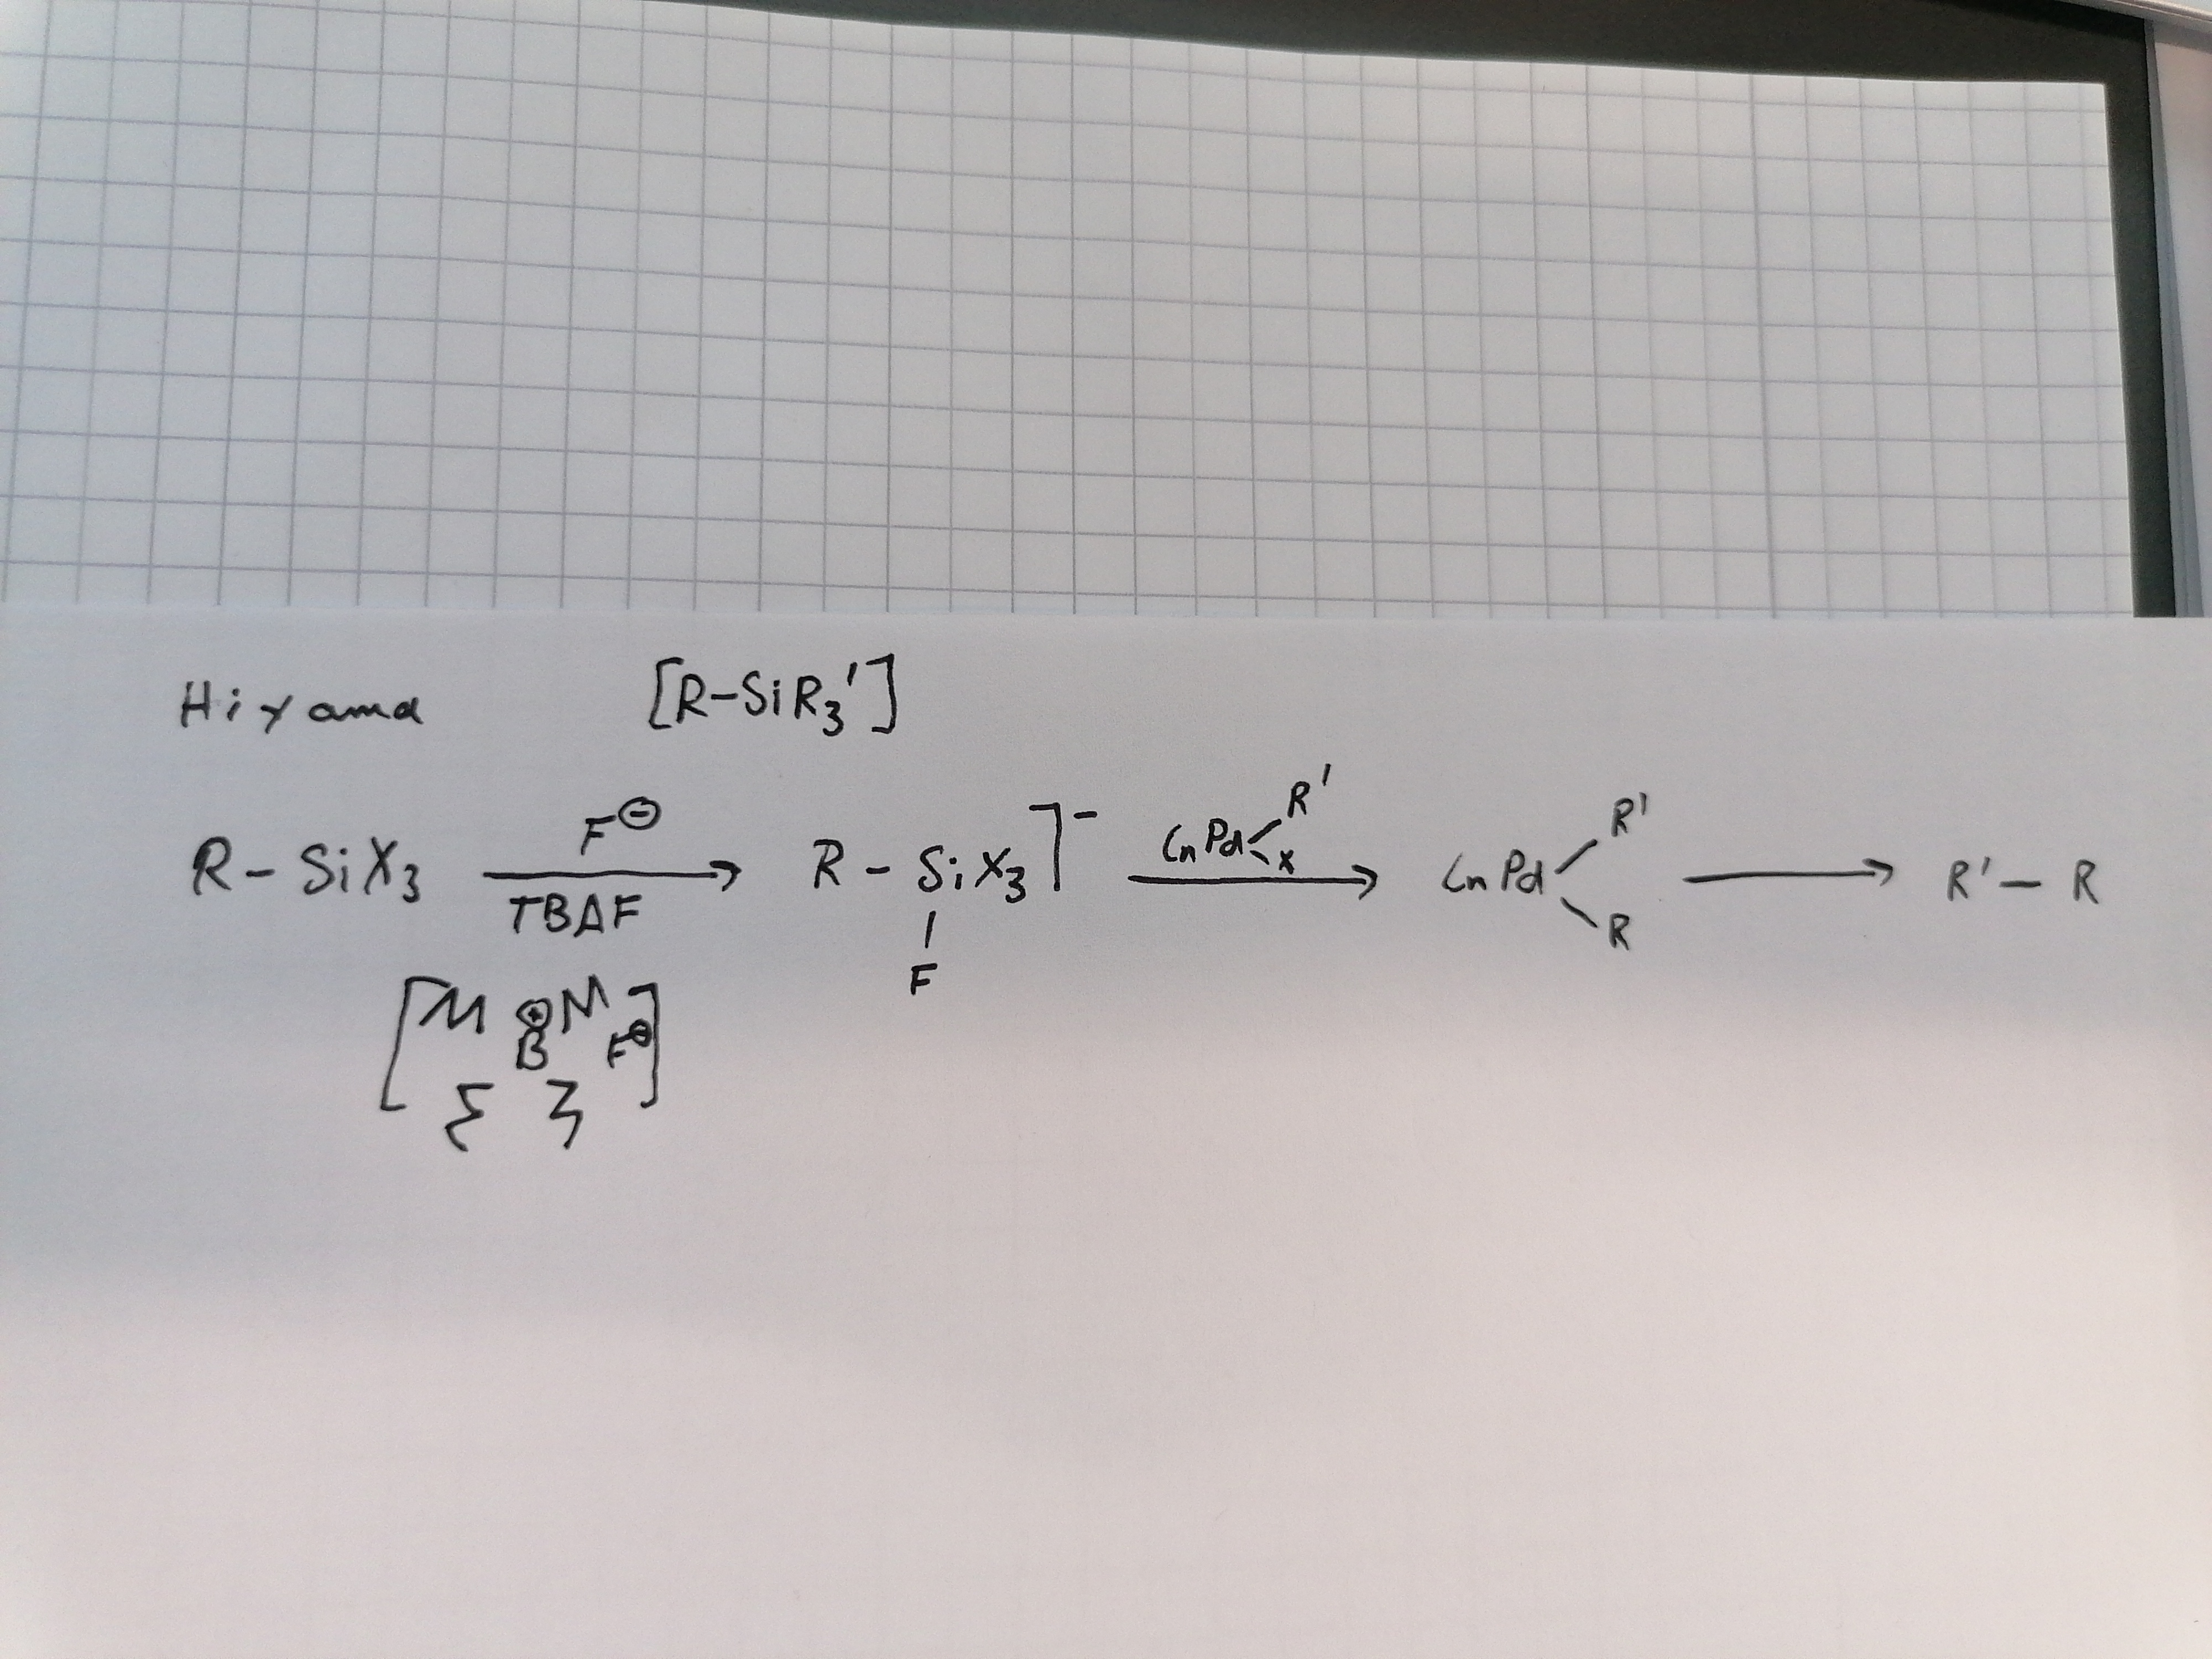 Hiyama [R-SiR₃']
R - SiX₃ F⊖ TBAF → R - SiX₃]⁻ F LnPd R' X → LnPd R' R → R' - R
[ ⊕ B F⊖ ]